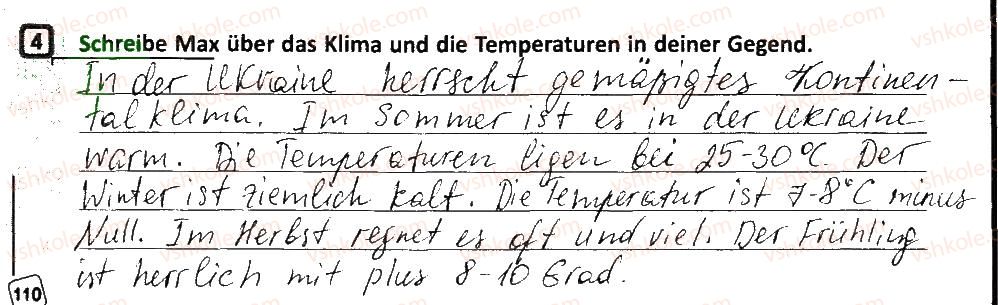 4 Schreibe Max über das Klima und die Temperaturen in deiner Gegend.
In der Ukraine herrscht gemäßigtes Kontinen-
talklima. Im Sommer ist es in der Ukraine
warm. Die Temperaturen ligen bei 25-30°C. Der
Winter ist ziemlich kalt. Die Temperatur ist 7-8°C minus
Null. Im Herbst regnet es oft und viel. Der Frühling
ist herrlich mit plus 8-10 Grad.
110